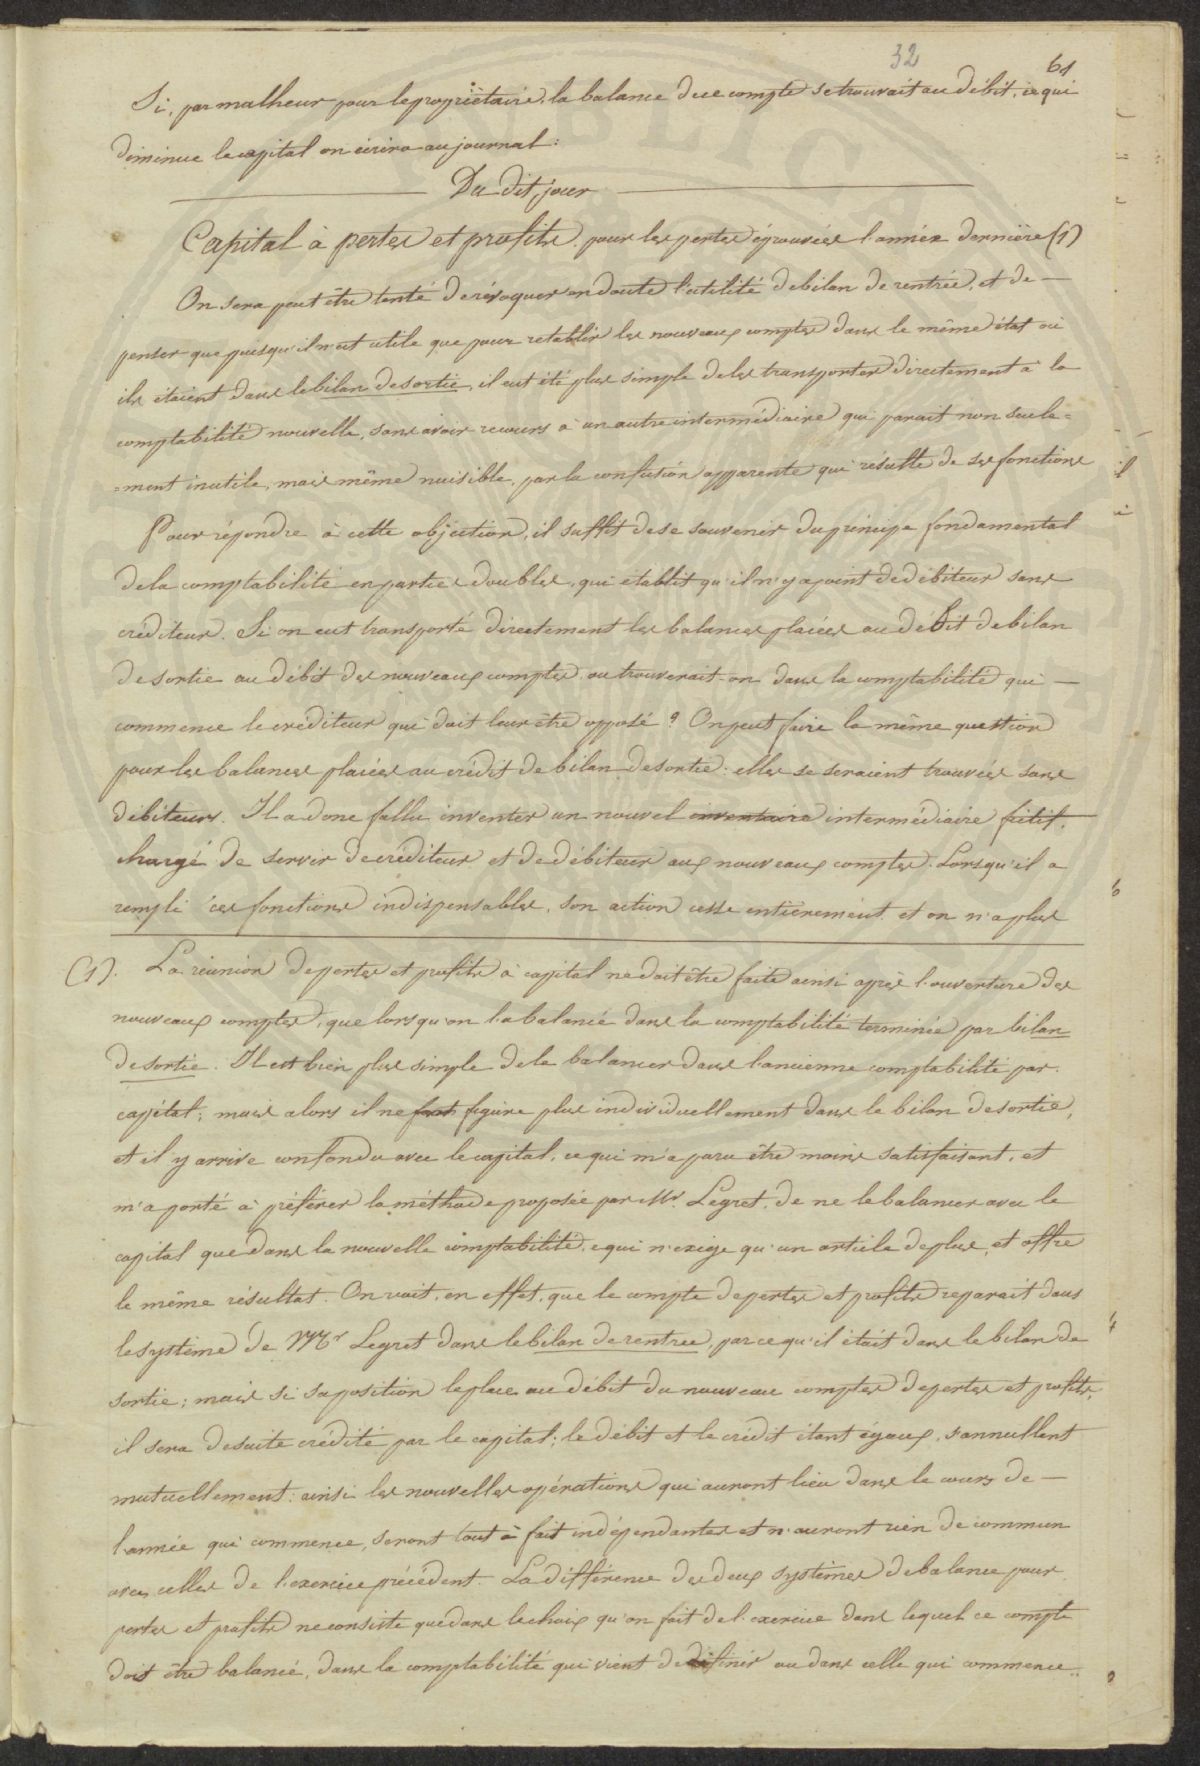 32
61
Si, par malheur pour le propriétaire, la balance du compte se trouvait au débit, ce qui
diminue le capital on écrira au journal:
Du dit jour
Capital à pertes et profits, pour les pertes éprouvées l'année dernière (1)
On sera peut être tenté de révoquer en doute l'utilité de bilan de rentrée, et de —
penser que puisqu'il n'est utile que pour retablir les nouveaux comptes dans le même état où
ils étaient dans le bilan de sortie, il eut été plus simple de les transporter directement à la
comptabilité nouvelle, sans avoir recours à un autre intermédiaire qui parait non seule=
=ment inutile, mais même nuisible, par la confusion apparente qui résulte de ses fonctions
Pour répondre à cette objection, il suffit de se souvenir du principe fondamental
de la comptabilité en parties doubles, qui établit qu'il n'y a point de débiteur sans
créditeur. Si on eut transporté directement les balances placées au débit de bilan
de sortie au débit des nouveaux comptes, où trouverait-on dans la comptabilité qui —
commence le créditeur qui doit leur être opposé? On peut faire la même question
pour les balances placées au crédit de bilan de sortie: elles se seraient trouvées sans
débiteurs. Il a donc fallu inventer un nouvel inventaire intermédiaire fictif,
chargé de servir de créditeur et de débiteur aux nouveaux comptes. Lorsqu'il a
rempli ces fonctions indispensables, son action cesse entièrement, et on n'a plus
(1). La réunion de pertes et profits à capital ne doit être faite ainsi après l'ouverture des
nouveaux comptes, que lorsqu'on l'a balancé dans la comptabilité terminée par bilan
de sortie. Il est bien plus simple de le balancer dans l'ancienne comptabilité par
capital; mais alors il ne figure plus individuellement dans le bilan de sortie,
et il y arrive confondu avec le capital, ce qui m'a paru être moins satisfaisant, et
m'a porté à préférer la méthode proposée par Mr. Legret, de ne le balancer avec le
capital que dans la nouvelle comptabilité, ce qui n'exige qu'un article de plus, et offre
le même résultat. On voit, en effet, que le compte de pertes et profits reparait dans
le système de Mr Legret dans le bilan de rentrée, parce qu'il était dans le bilan de
sortie; mais si sa position le place au débit du nouveau comptes de pertes et profits,
il sera de suite crédité par le capital; le débit et le crédit étant égaux, s'annullent
mutuellement: ainsi les nouvelles opérations qui auront lieu dans le cours de —
l'année qui commence, seront tout à fait indépendantes et n'auront rien de commun
avec celles de l'exercice précédent. La différence des deux systèmes de balance pour
pertes et profits ne consiste que dans le choix qu'on fait de l'exercice dans lequel ce compte
doit être balancé, dans la comptabilité qui vient de finir ou dans celle qui commence..